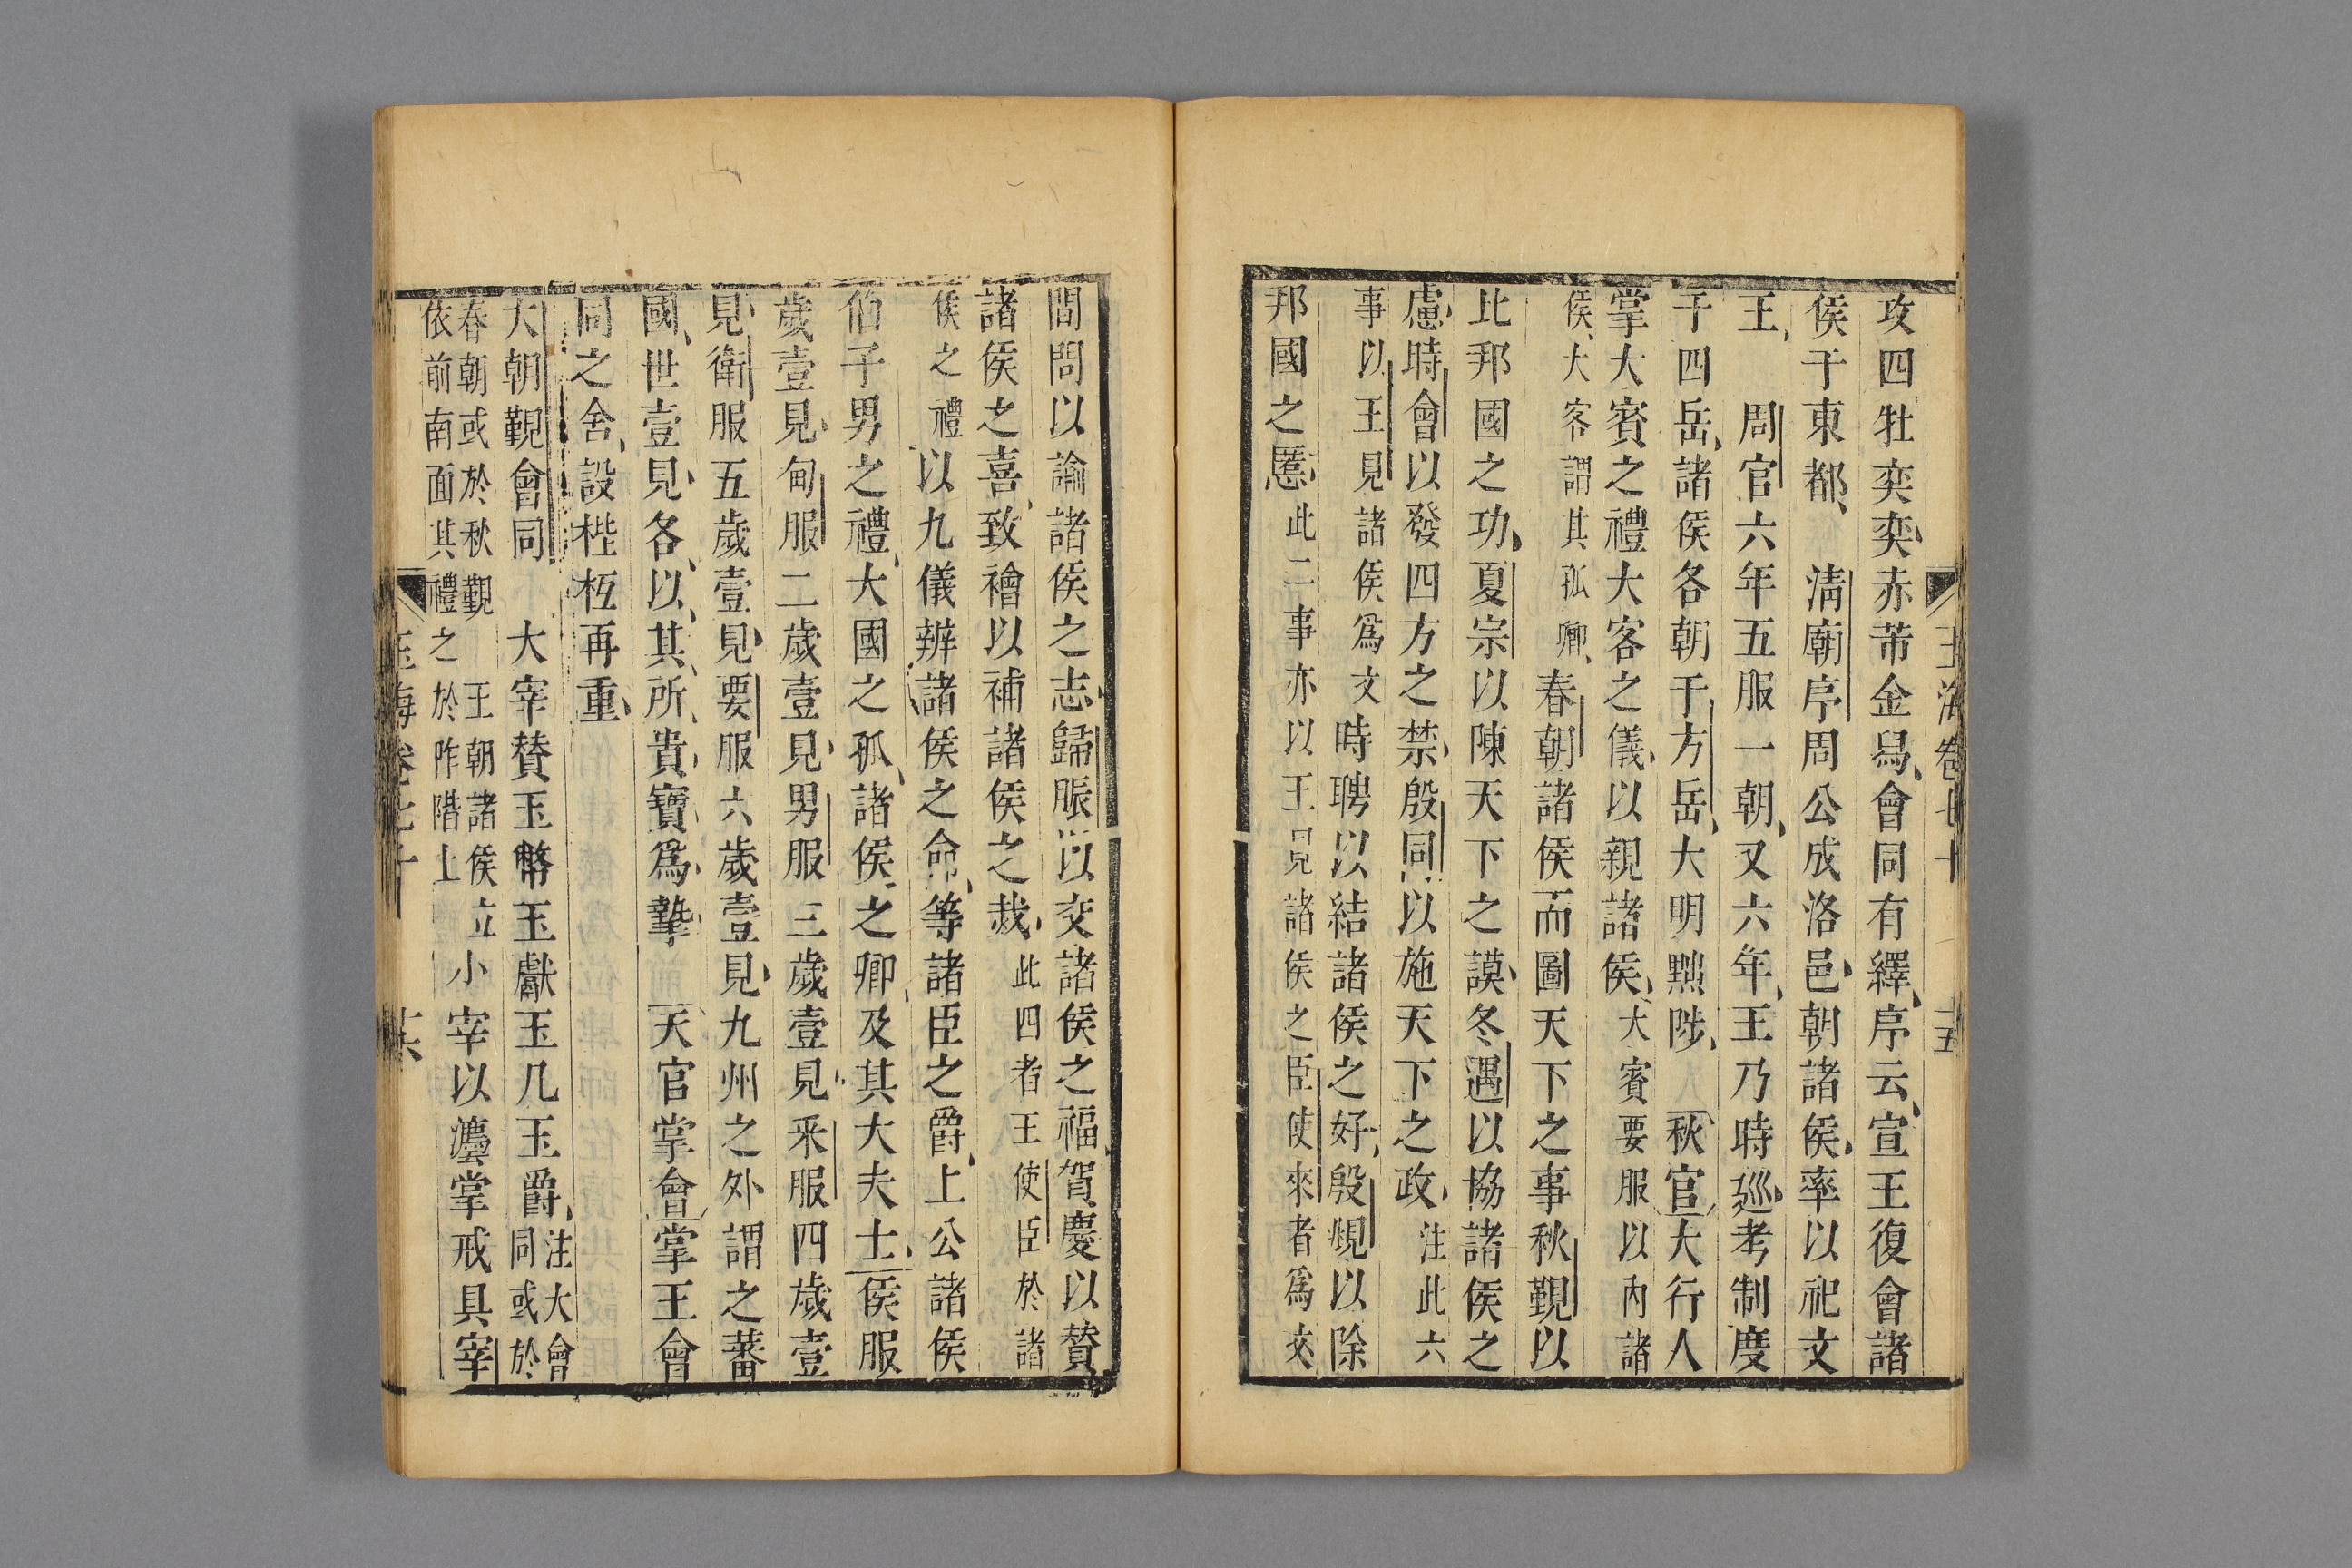 玉海卷七十 十五
攻四牡奕奕赤芾金舄會同有繹序云宣王復會諸
侯于東都 淸廟序周公成洛邑朝諸侯率以祀文
王 周官六年五服一朝又六年王乃時廵考制度
于四岳諸侯各朝于方岳大明黜陟 秋官大行人
掌大賓之禮大客之儀以親諸侯大賓要服以內諸
侯大客謂其孤卿春朝諸侯而圖天下之事秋覲以
比邦國之功夏宗以陳天下之謨冬遇以協諸侯之
慮時會以發四方之禁殷同以施天下之政注此六
事以王見諸侯爲文時聘以結諸侯之好殷覜以除
邦國之慝此二事亦以王見諸侯之臣使來者爲文
閒問以諭諸侯之志歸脤以交諸侯之福賀慶以贊
諸侯之喜致禬以補諸侯之烖此四者王使臣於諸
侯之禮以九儀辨諸侯之命等諸臣之爵上公諸侯
伯子男之禮大國之孤諸侯之卿及其大夫士侯服
歲壹見甸服二歲壹見男服三歲壹見采服四歲壹
見衛服五歲壹見要服六歲壹見九州之外謂之蕃
國世壹見各以其所貴寶爲摯 天官掌會掌王會
同之舍設梐枑再重
大朝覲會同 大宰贊玉幣玉獻玉几玉爵注大會同或於
春朝或於秋覲 王朝諸侯立依前南面其禮之於阼階上小宰以灋掌戒具宰
玉海卷七十 十六